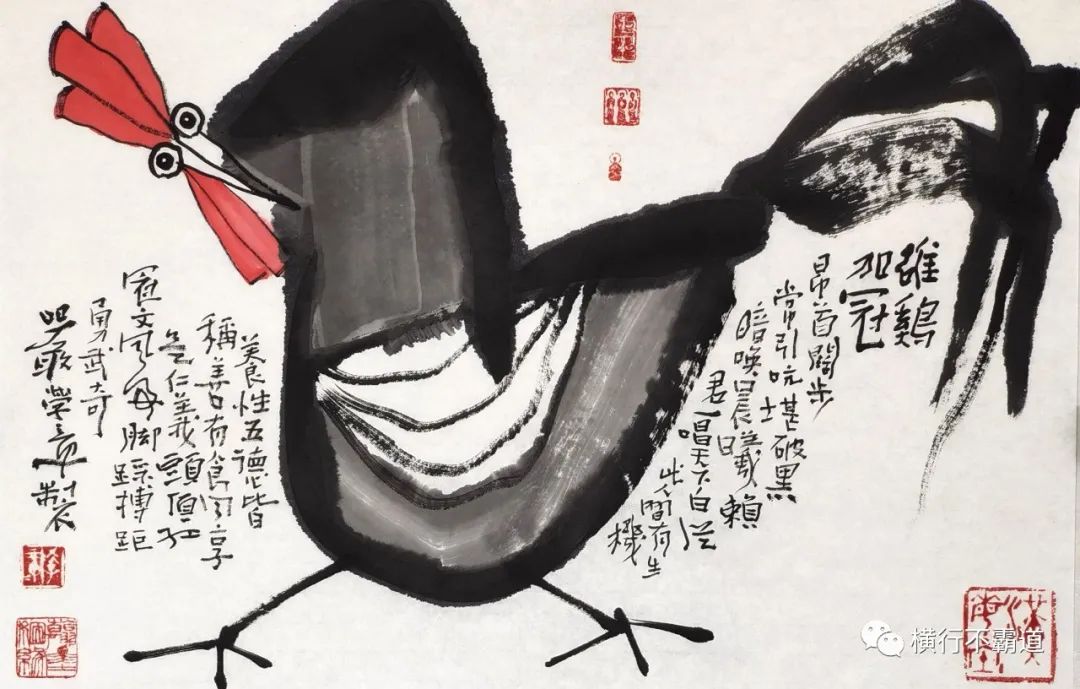 雄鷄
加冠
昂首闊步
常引吭堪破黑
暗唤晨曦賴
君一唱天下白從
此人間有生
機
養性五德皆
稱善有食同享
仁義頭頂紅
冠文風 脚踩搏距
勇武奇
製
横行不霸道